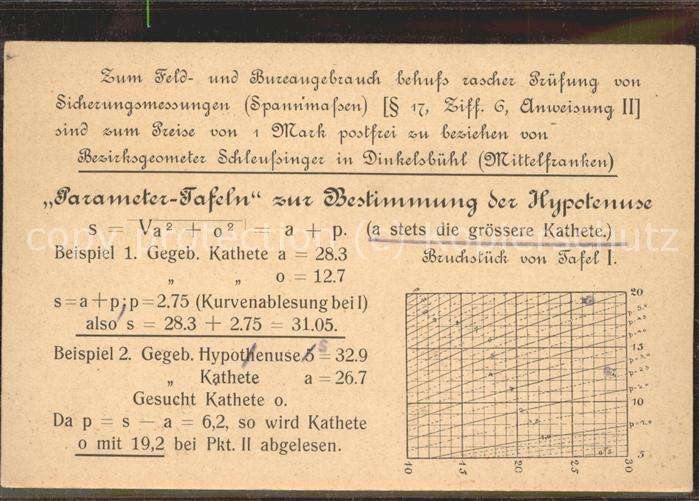 Zum Feld- und Bureaugebrauch behufs rascher Prüfung von
Sicherungsmessungen (Spannmaßen) [§ 17, Ziff. 6, Anweisung II]
sind zum Preise von 1 Mark postfrei zu beziehen von
Bezirksgeometer Schleußinger in Dinkelsbühl (Mittelfranken)
„Parameter-Tafeln“ zur Bestimmung der Hypotenuse
s = √a² + o² = a + p. (a stets die grössere Kathete.)
Beispiel 1. Gegeb. Kathete a = 28.3
„ „ o = 12.7
s = a + p; p = 2.75 (Kurvenablesung bei I)
also s = 28.3 + 2.75 = 31.05.
Beispiel 2. Gegeb. Hypothenuse s = 32.9
„ Kathete a = 26.7
Gesucht Kathete o.
Da p = s — a = 6,2, so wird Kathete
o mit 19,2 bei Pkt. II abgelesen.
Bruchstück von Tafel I.
20
15
10
5
10 15 20 25 30
copyright protection (c) Kopierschutz